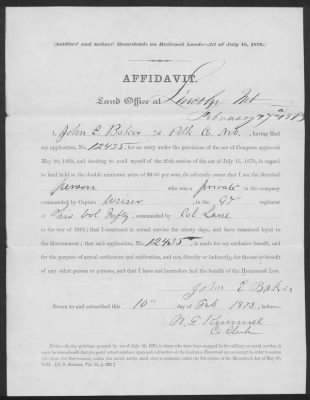 (Soldiers' and Sailors' Homesteads on Railroad Lands—Act of July 15, 1870.)
AFFIDAVIT.
Land Office at Lincoln Neb
February 17th 1873
I, John E Baker of Polk Co. Neb., having filed
my application, No. 12435, for an entry under the provisions of the act of Congress approved
May 20, 1862, and desiring to avail myself of the 25th section of the act of July 15, 1870, in regard
to land held at the double minimum price of $2.50 per acre, do solemnly swear that I am the identical
person who was a private in the company
commanded by Captain Weiser, in the 97" regiment
of Ohio Vol Infty, commanded by Col Lane
in the war of 1861; that I continued in actual service for ninety days, and have remained loyal to
the Government; that said application, No. 12435, is made for my exclusive benefit, and
for the purpose of actual settlement and cultivation, and not, directly or indirectly, for the use or benefit
of any other person or persons, and that I have not heretofore had the benefit of the Homestead Law.
John E Baker
Sworn to and subscribed this 10" day of Feb 1873, before
Kimmel
Co Clerk